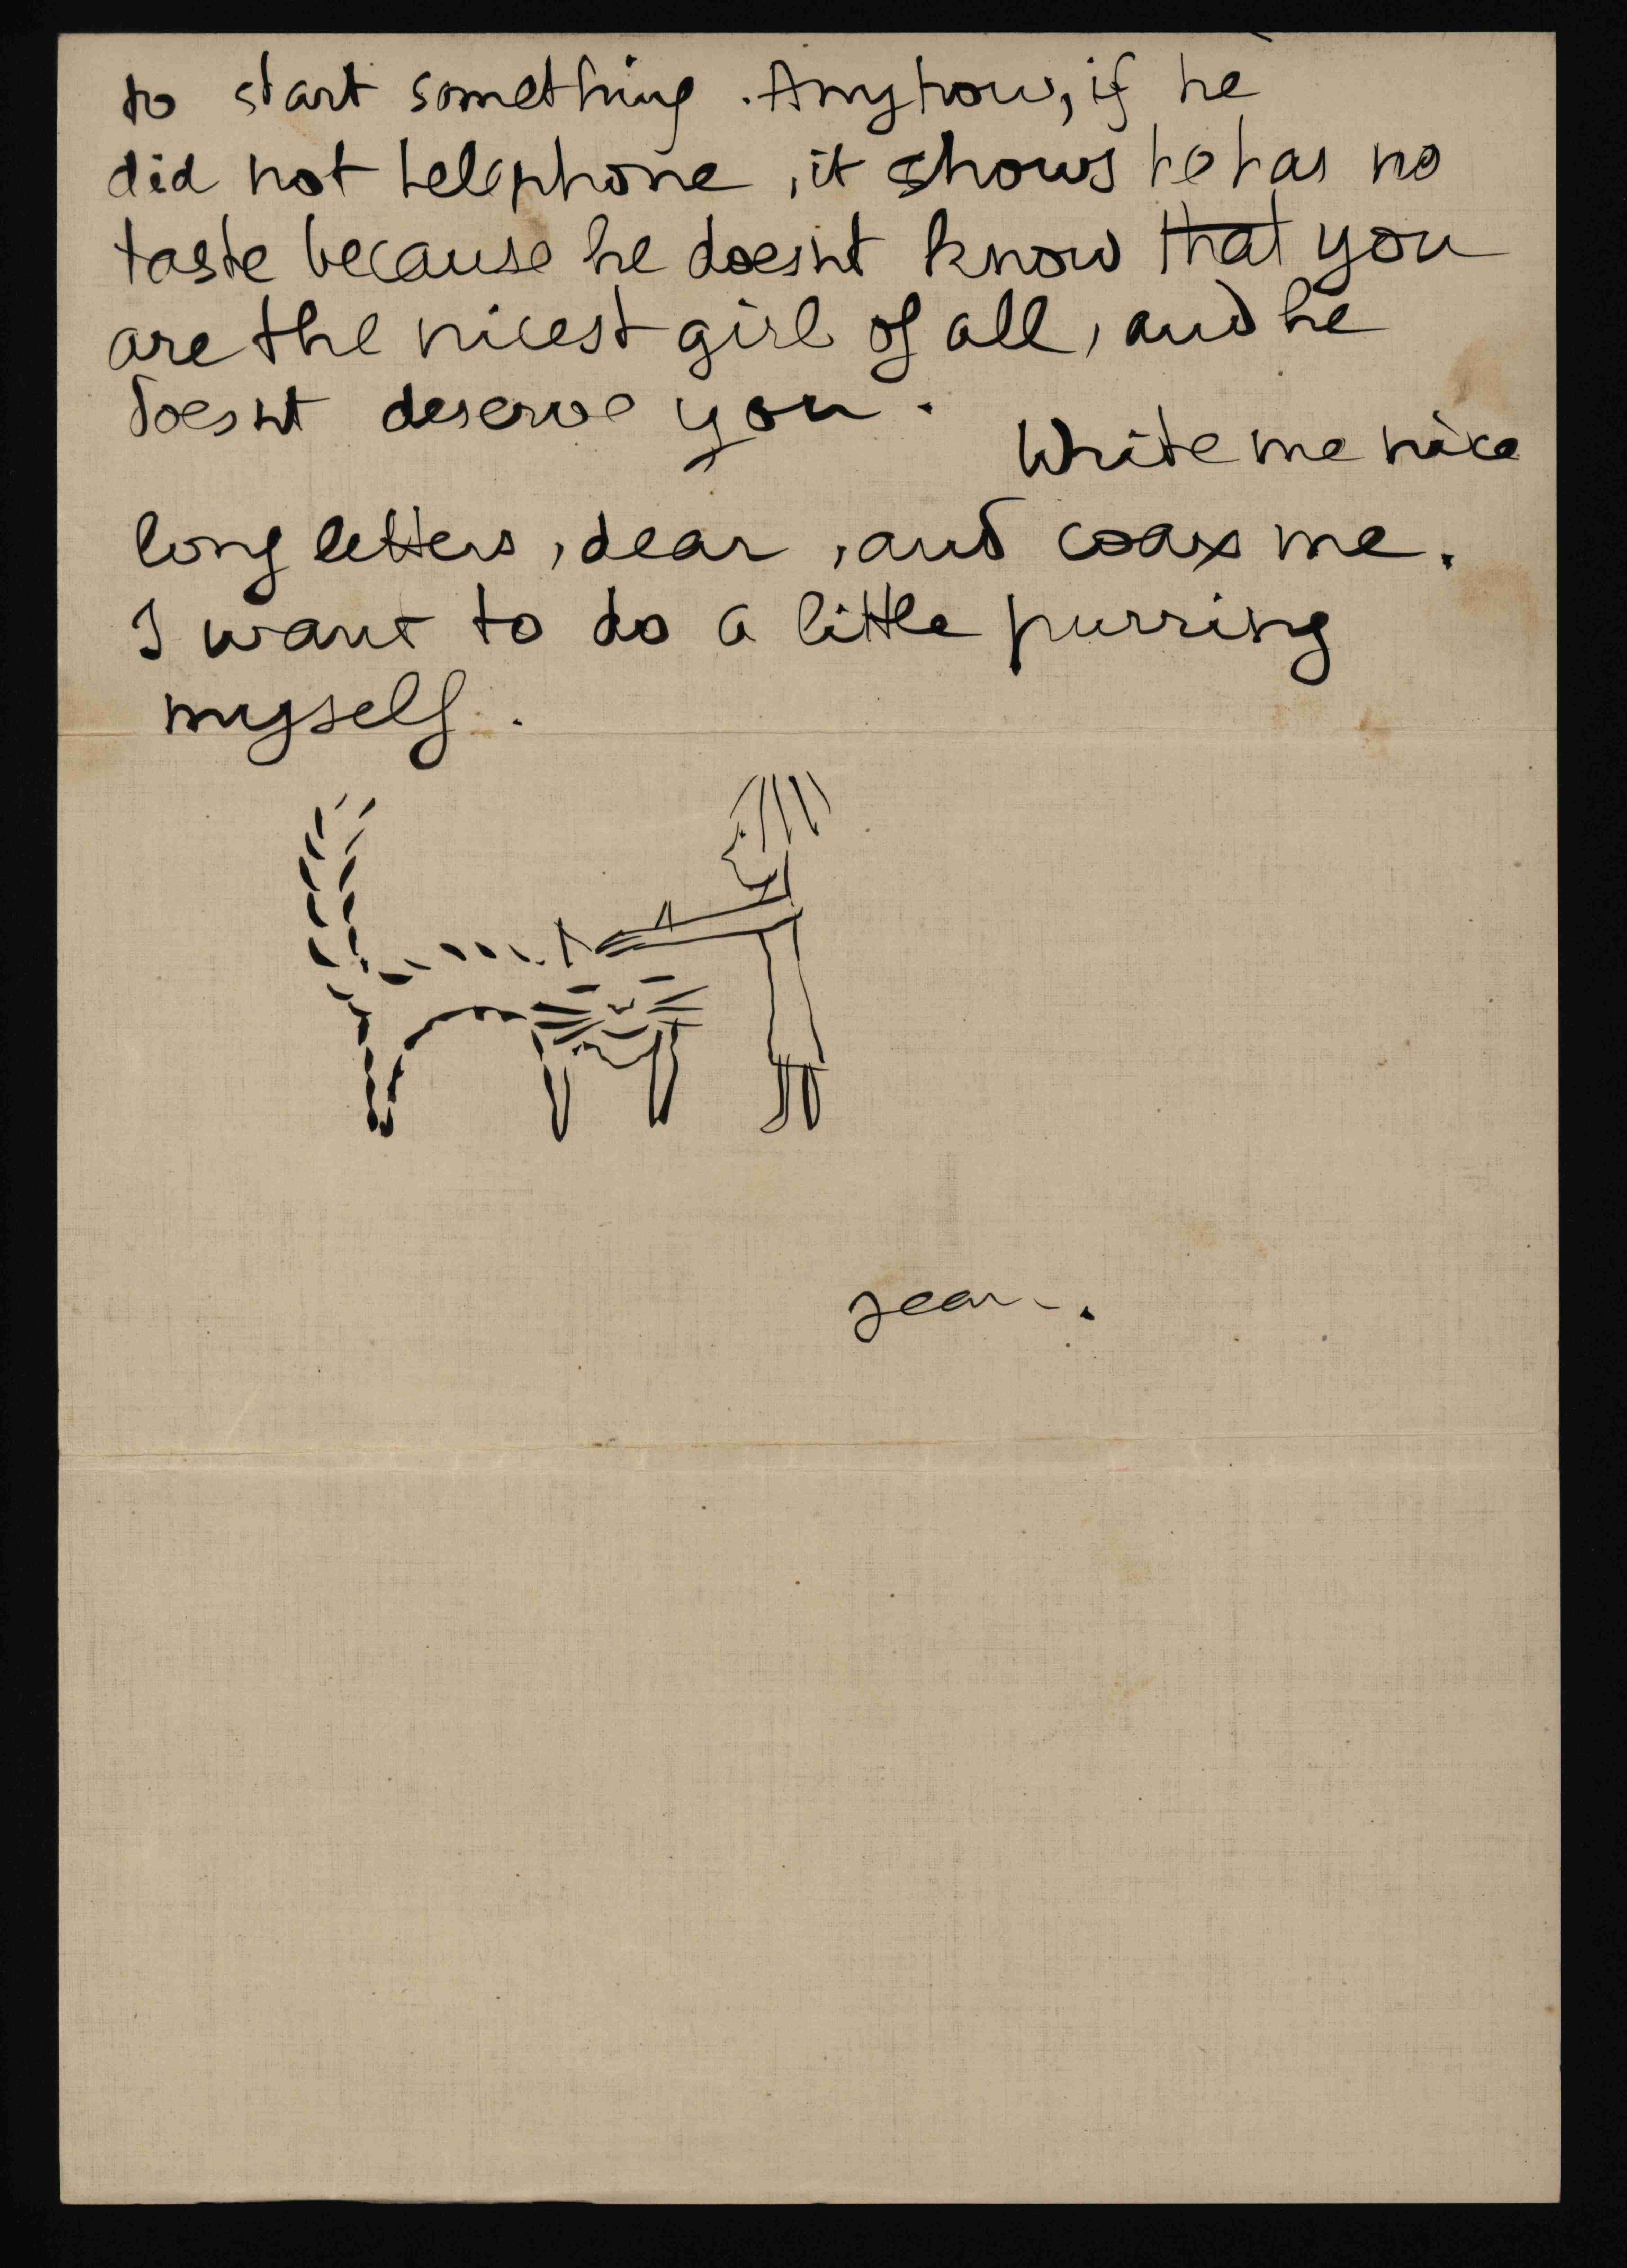 to start something. Anyhow, if he
did not telephone, it shows he has no
taste because he doesnt know that you
are the nicest girl of all, and he
doesnt deserve you.
Write me nice
long letters, dear, and coax me.
I want to do a little purring
myself.
Jean.